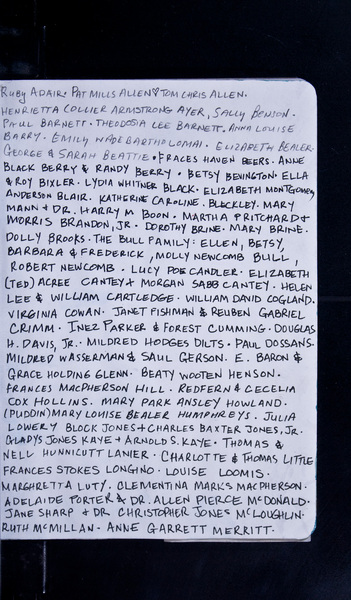 Ruby Adair. Pat Mills Allen ♥ Tom Chris Allen.
Henrietta Collier Armstrong Ayer, Sally Benson.
Paul Barnett. Theodosia Lee Barnett. Anna Louise
Barry. Emily Wade Bartholomai. Elizabeth Bealer.
George & Sarah Beattie. Fraces Haven Beers. Anne
Black Berry & Randy Berry. Betsy Bevington. Ella
& Roy Bixler. Lydia Whitner Black. Elizabeth Montgomery
Anderson Blair. Katherine Caroline. Bleckley. Mary
Mann & Dr. Harry M Boon. Martha Pritchard &
Morris Brandon, Jr. Dorothy Brine. Mary Brine.
Dolly Brooks. The Bull Family: Ellen, Betsy,
Barbara & Frederick, Molly Newcomb Bull,
Robert Newcomb. Lucy Doe Candler. Elizabeth
(Ted) Acree Cantey & Morgan Sabb Cantey. Helen
Lee & William Cartledge. William David Cogland.
Virginia Cowan. Janet Fishman & Reuben Gabriel
Crimm. Inez Parker & Forest Cumming. Douglas
H. Davis, Jr. Mildred Hodges Dilts. Paul Dossans.
Mildred Wasserman & Saul Gerson. E. Baron &
Grace Holding Glenn. Beaty Wooten Henson.
Frances MacPherson Hill. Redfern & Cecelia
Cox Hollins. Mary Park Ansley Howland.
(Puddin) Mary Louise Bealer Humphreys. Julia
Lowery Block Jones & Charles Baxter Jones, Jr.
Gladys Jones Kaye & Arnold S. Kaye. Thomas &
Nell Hunnicutt Lanier. Charlotte & Thomas Little
Frances Stokes Longino. Louise Loomis.
Marghretta Luty. Clementina Marks MacPherson.
Adelaide Porter & Dr. Allen Pierce McDonald.
Jane Sharp & Dr Christopher Jones McLoughlin.
Ruth McMillan. Anne Garrett Merritt.